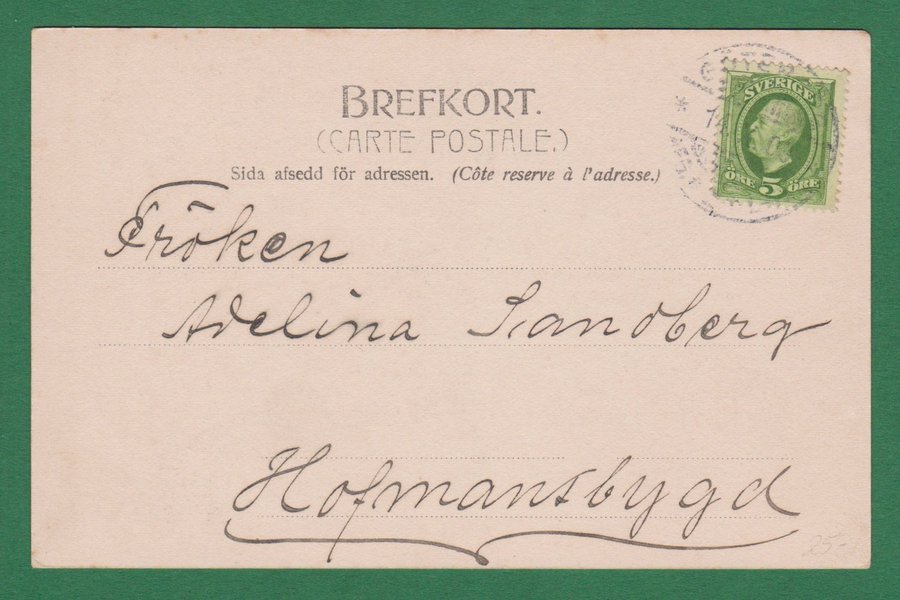 BREFKORT.
(CARTE POSTALE.)
Sida afsedd för adressen. (Côte reserve à l'adresse.)
SVERIGE
ÖRE 5 ÖRE
Fröken
Adelina Sandberg
Hofmansbygd
25-